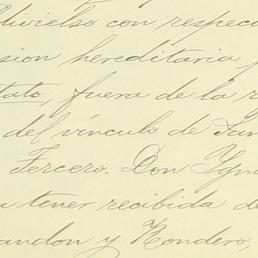 divielso con respec
sion hereditaria
tato, fuera de la r
del vínculo de San
Tercero. Don Ygna
tener recibida de
andon y Rondero,